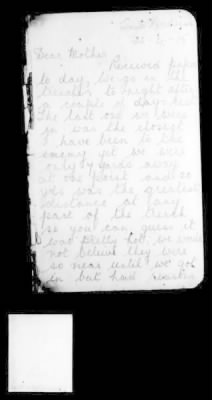 Dear Mother
Received paper
to day. We go in the
trenches to night after
a couple of days rest
The last one we were
in was the closest
I have been to the
enemy yet we were
only 7 yards away
at one point and 50
yds was the greatest
distance at any
part of the trench
so you can guess it
was pretty hot, we would
not believe they were
so near until we got
in but hand